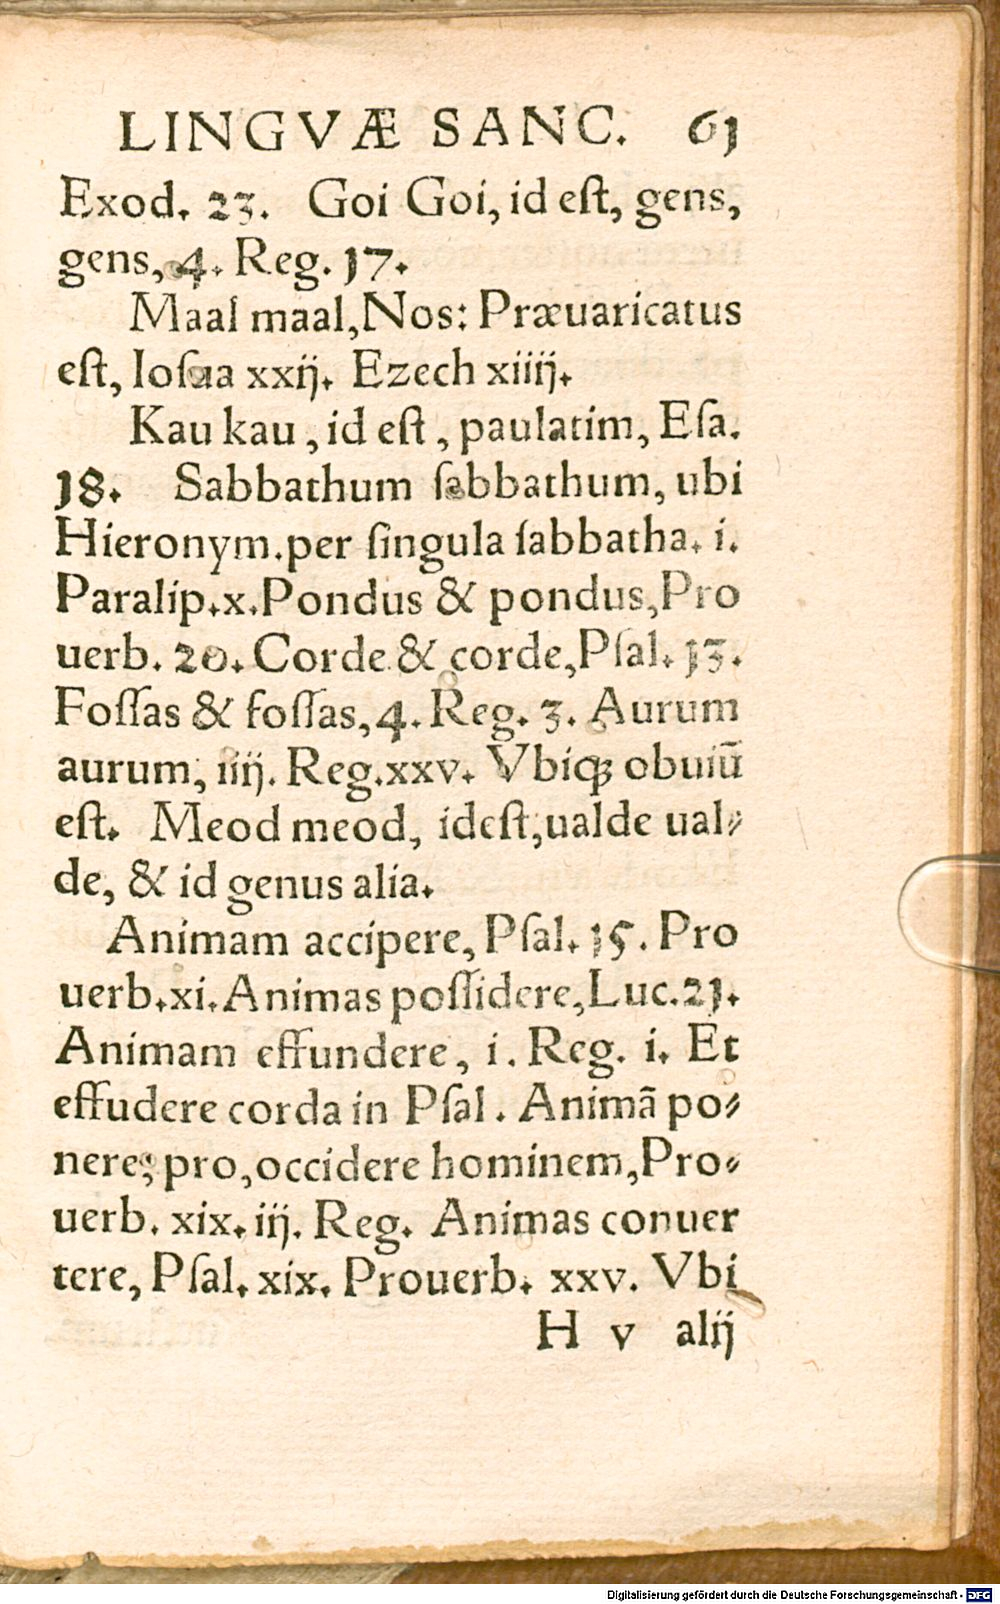 LINGVÆ SANC. 61
Exod. 23. Goi Goi, id eſt, gens,
gens, 4. Reg. 17.
Maal maal, Nos: Præuaricatus
eſt, Ioſua xxij. Ezech xiiij.
Kau kau, id eſt, paulatim, Eſa.
18. Sabbathum ſabbathum, ubi
Hieronym. per ſingula ſabbatha. i.
Paralip. x. Pondus & pondus, Pro
uerb. 20. Corde & corde, Pſal. 13.
Foſſas & foſſas, 4. Reg. 3. Aurum
aurum, iiij. Reg. xxv. Vbiqꝫ obuiū
est. Meod meod, ideſt, ualde ual⸗
de, & id genus alia.
Animam accipere, Pſal. 15. Pro
uerb. xi. Animas poſſidere, Luc. 21.
Animam effundere, i. Reg. i. Et
effudere corda in Pſal. Animā po⸗
nere, pro, occidere hominem, Pro⸗
uerb. xix. iij. Reg. Animas conuer
tere, Pſal. xix. Prouerb. xxv. Vbi
H v alij
Digitalisierung gefördert durch die Deutsche Forschungsgemeinschaft - DFG